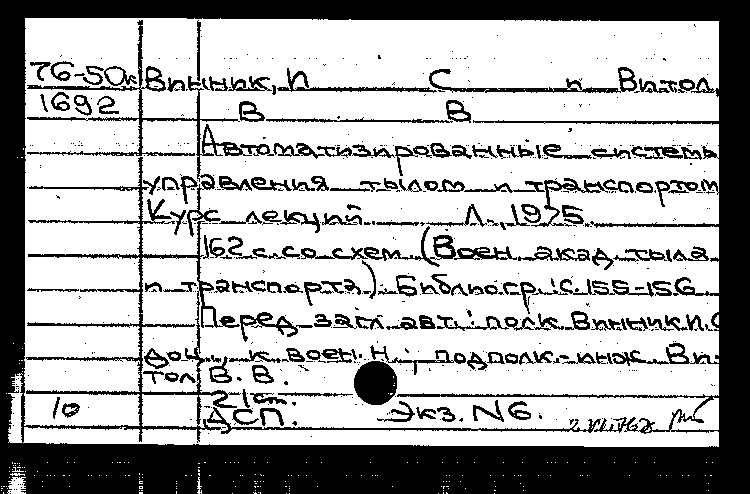 76-50к Винник, И С и Витол,
1692 В В
Автоматизированные системы
управления тылом и транспортом
Курс лекций Л., 1975.
162 с. со схем (Воен акад. тыла
и транспорта). Библиогр.: С. 155-156.
Перед загл авт.: полк Винник И.С
доц., к воен. н.; подполк.-инж. Ви-
тол В. В.
21 см.
10 ДСП. Экз. N6.